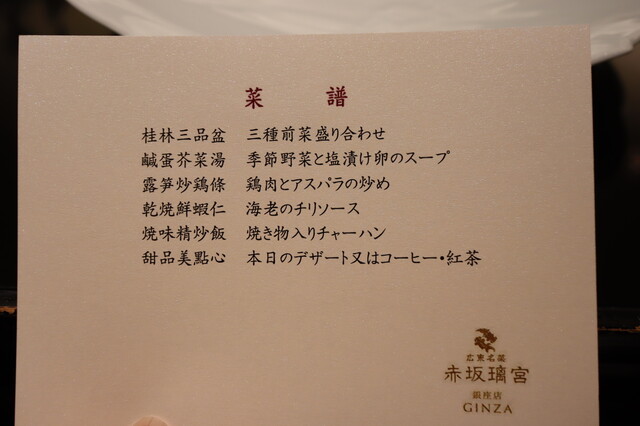 菜譜
桂林三品盆 三種前菜盛り合わせ
鹹蛋芥菜湯 季節野菜と塩漬け卵のスープ
露筍炒鶏條 鶏肉とアスパラの炒め
乾焼鮮蝦仁 海老のチリソース
焼味精炒飯 焼き物入りチャーハン
甜品美點心 本日のデザート又はコーヒー・紅茶
広東名菜
赤坂璃宮
銀座店
GINZA